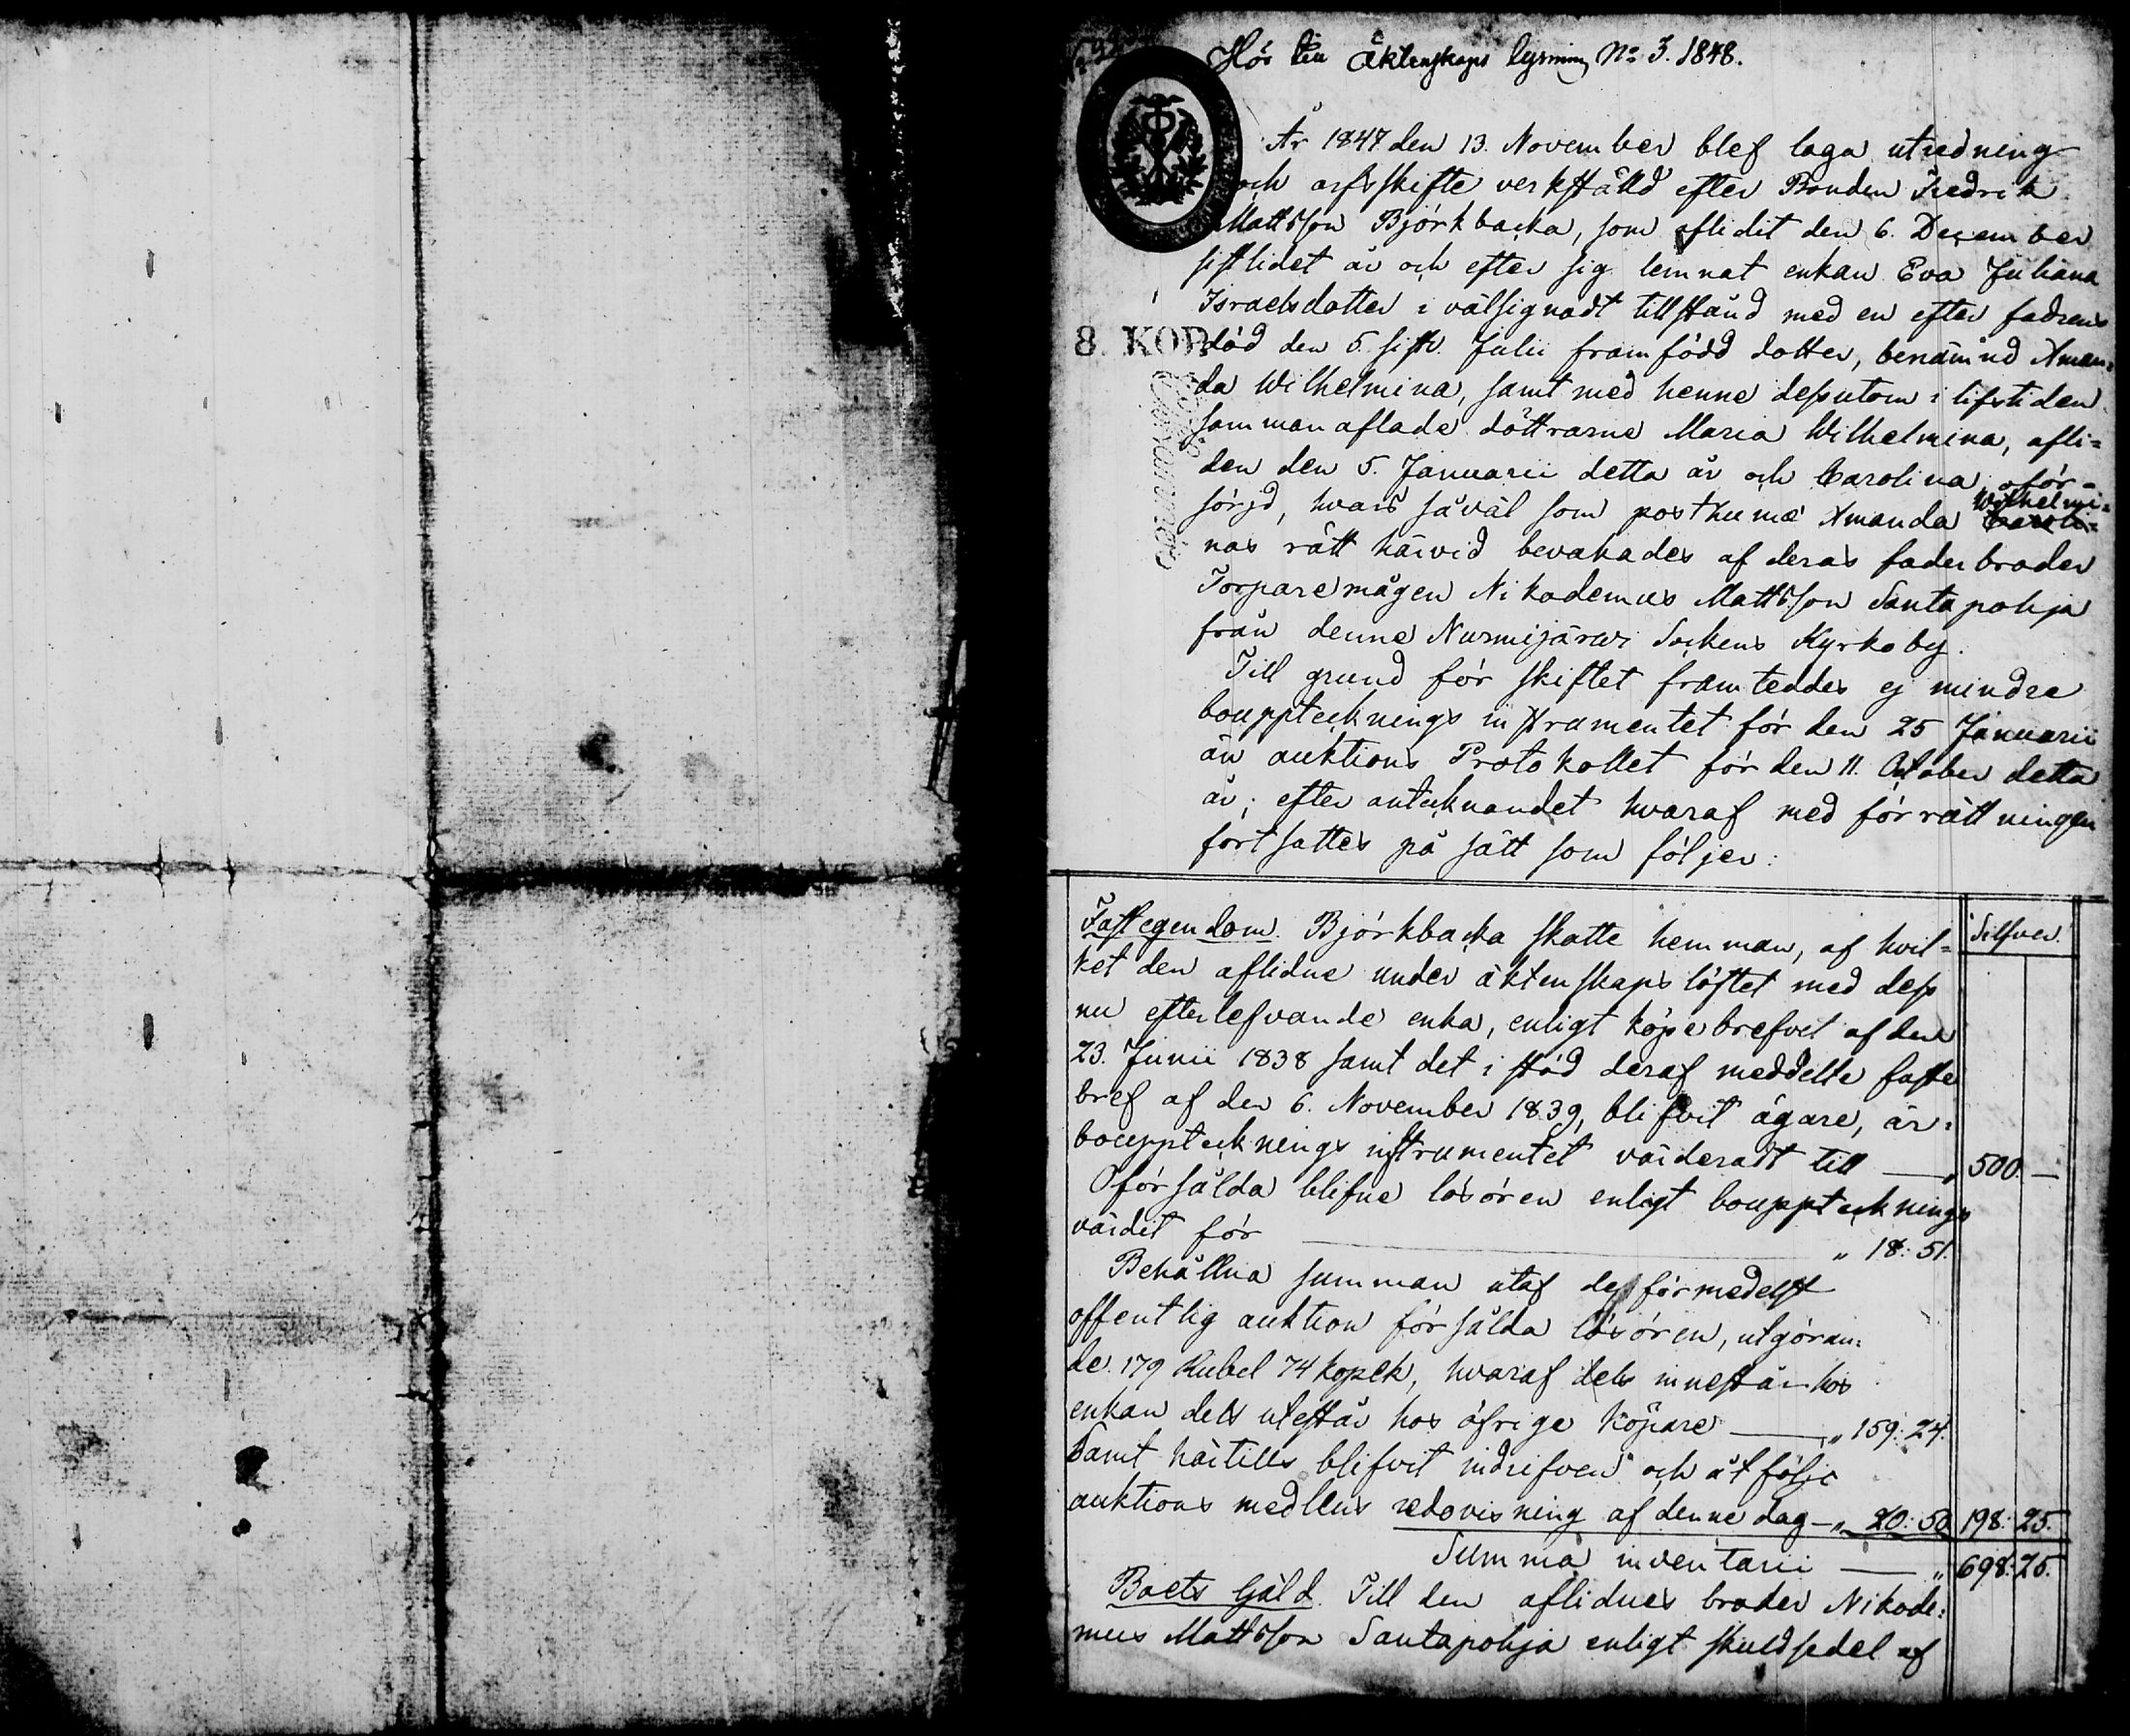 Hör till Äktenskaps lysning No 3. 1848.
År 1847 den 13. November blef laga utredning
och arfsskifte verkställd efter Bonden Fredrik
Mattsson Björkbacka, som aflidit den 6. December
sistlidet år och efter sig lemnat enkan Eva Juliana
Israelsdotter i välsignadt tillstånd med en efter fadrens
8. KOP.
död den 5. sistl. Julii framfödd dotter, benämnd Aman=
da Wilhelmina, samt med henne dessutom i lifstiden
samman aflade döttrarne Maria Wilhelmina, afli=
den den 5. Januarii detta år och Carolina, oför=
sörjd, hvars såväl som posthumæ Amanda Wilhelmi=
nas rätt härvid bevakades af deras faderbroder
Torparemågen Nikodemus Mattsson Santapohja
från denne Nurmijärwi Sockens Kyrkoby.
Till grund för skiftet framteddes ej mindre
bouppteckningsinstrumentet för den 25 Januarii
än auktions Protokollet för den 11. October detta
år; efter antecknandet hvaraf med förrättningen
fortsattes på sätt som följer:
Fast egendom. Björkbacka skatte hemman, af hvil=
Silfver.
ket den aflidne under äktenskaps löftet med dess
nu efterlefvande enka, enligt köpebrefvet af den
23. Junii 1838 samt det i stöd deraf meddelte faste
bref af den 6. November 1839, blifvit ägare, är i
bouppteckningsinstrumentet värderadt till — " 500. —
Oförsålda blifne lösören enligt boupptecknings
värdet för — " 18: 51.
Behållna summan utaf dess förmedelst
offentlig auktion försålda lösören, utgöran=
de 179 Rubel 74 kopek, hvaraf dels innestår hos
enkan dels utestår hos öfrige köpare — " 159: 24.
Samt härtills blifvit indrifven och åtföljer
auktions medlens redovisning af denne dag — " 20: 50 198: 25.
Summa inventarii — " 698: 25.
Boets Gäld. Till den aflidnes broder Nikode=
mus Mattsson Santapohja enligt skuldsedel af